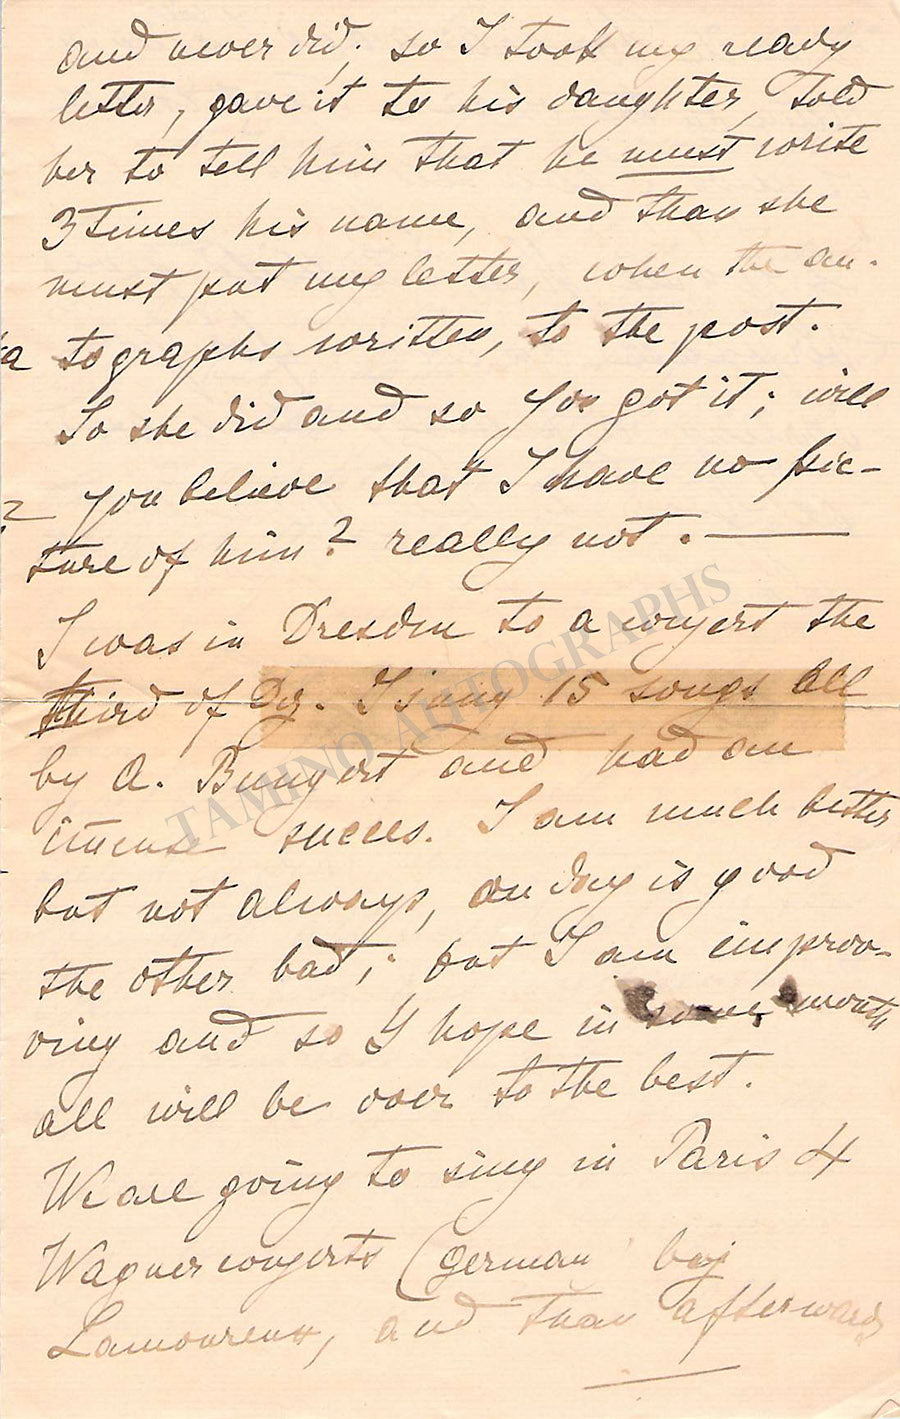 and never did; so I took my ready
letter, gave it to his daughter, told
her to tell him that he must write
3 times his name, and than she
must put my letter, when the au-
tographs written, to the post.
So she did and so you got it; will
you believe that I have no pic-
ture of him? really not. —
I was in Dresden to a conzert the
third of Dz. I sang 15 songs all
by A. Bungert and had an
succes. I am much better
but not always, on day is good
the other bad; but I am improo-
ving and so I hope in some month
all will be over to the best.
We are going to sing in Paris 4
Wagner conzerts (german by
Lamoureux, and than afterwards
TAMINO AUTOGRAPHS